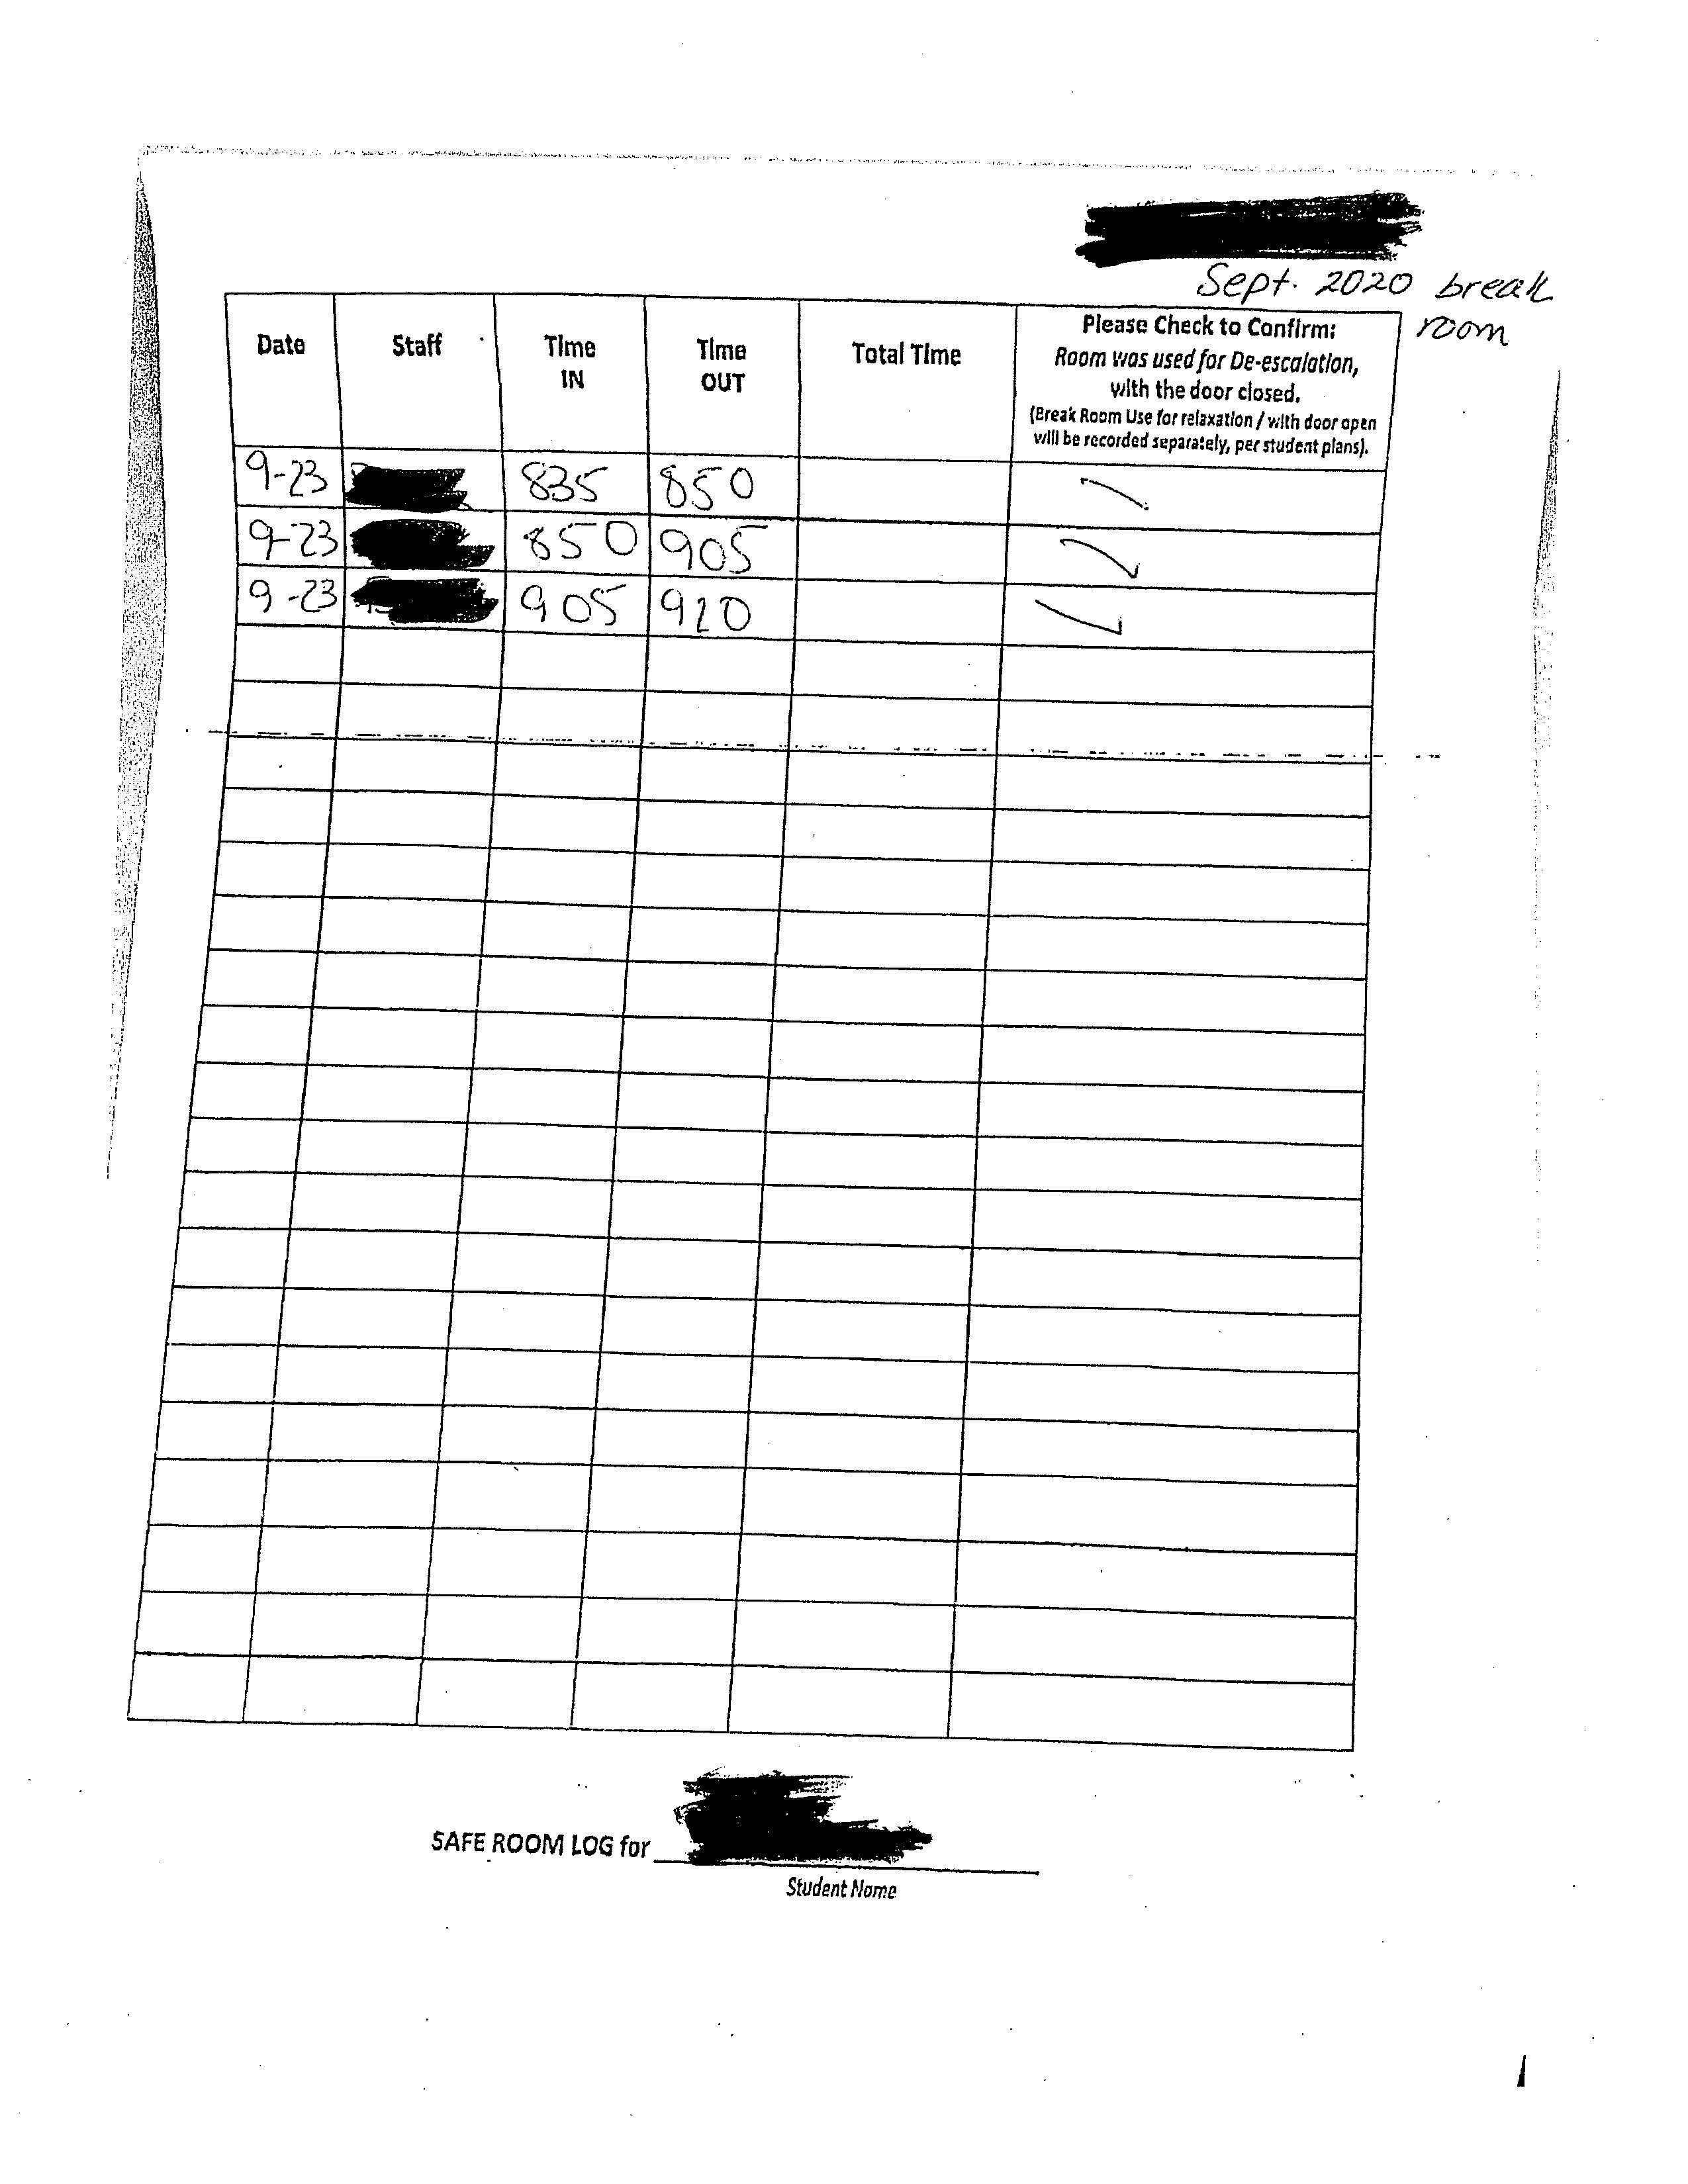 Sept. 2020 break
room
Date Staff Time IN Time OUT Total Time Please Check to Confirm:
Room was used for De-escalation,
with the door closed.
(Break Room Use for relaxation / with door open
will be recorded separately, per student plans).
9-23 835 850
9-23 850 905
9-23 905 920
SAFE ROOM LOG for
Student Name